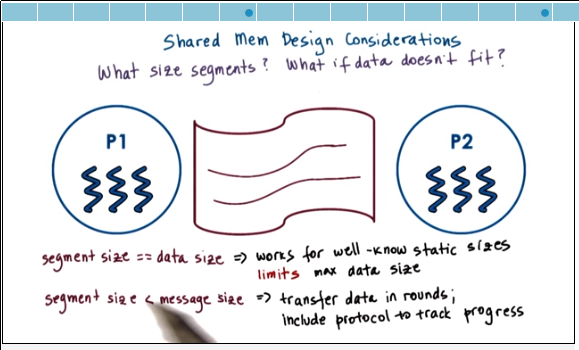 Shared Mem Design Considerations
What size segments? What if data doesn't fit?
P1
P2
segment size == data size => works for well-know static sizes
limits max data size
segment size < message size => transfer data in rounds;
include protocol to track progress